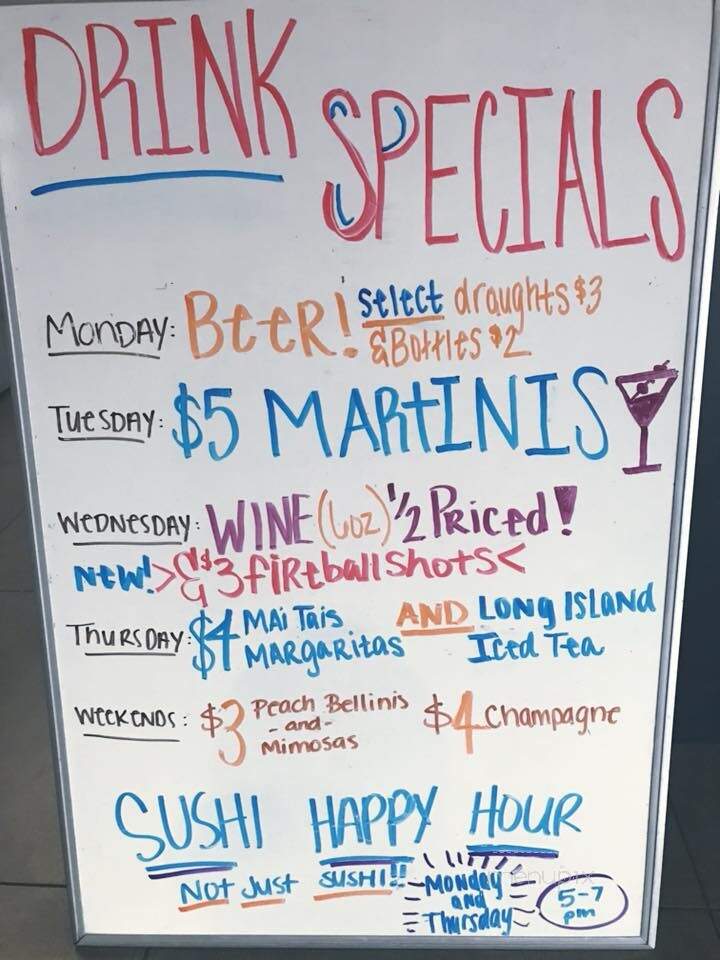 DRINK
SPECIALS
MONDAY: BEER! select draughts $3
& Bottles $2
TUESDAY: $5 MARTINIS
WEDNESDAY: WINE (6oz) 1/2 PRiced!
NEW! > & $3 fiREball ShotS <
ThURSDAY: $4 MAi Tais AND LONg ISLAND
MARgaRitas Iced Tea
WEEKENDS: $3 Peach Bellinis $4 Champagne
- and -
Mimosas
SUSHI HAPPY HOUR
NOT JUST SUSHI!! Monday
and
Thursday
5-7
pm